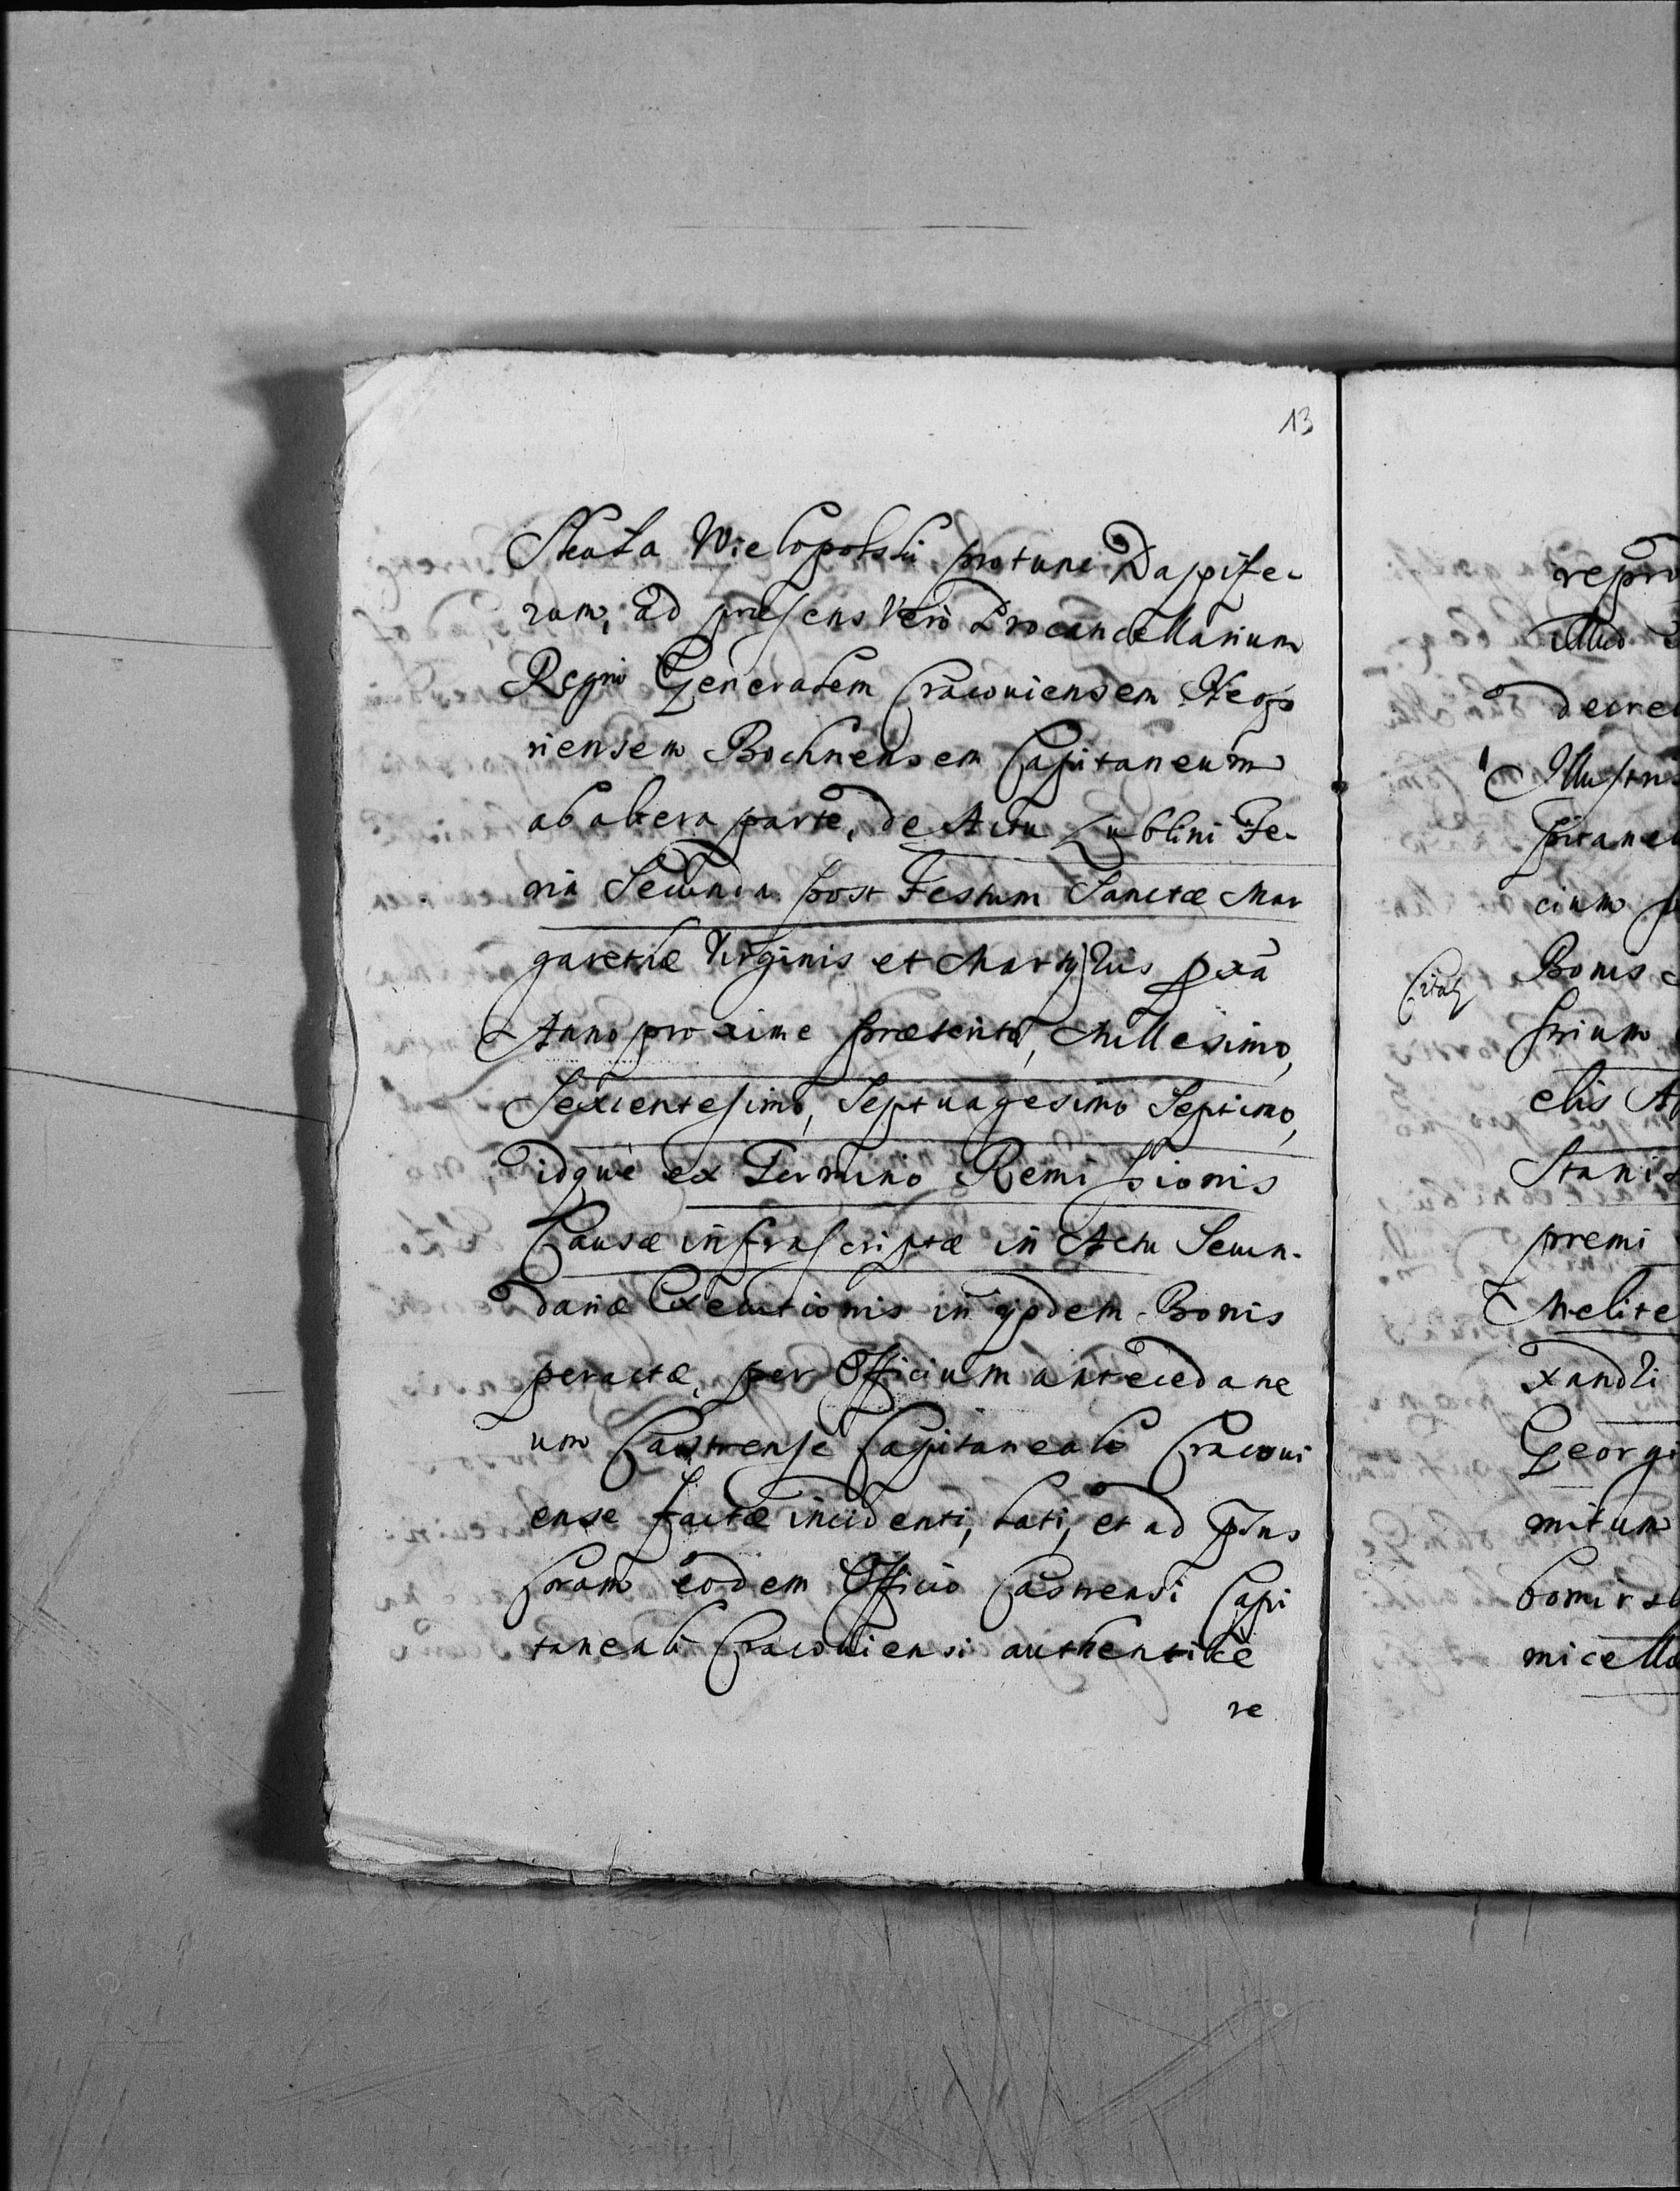 13
Skala Wielopolski protunc Dapife-
rum, ad præsens Vero Procancellarium
Regni Generalem Cracoviensem Neopo
niensem Bochnensem Capitaneum
ab altera parte, de Actu Lublini Fe-
ria Secunda post Festum Sanctæ Mar
garethæ Virginis et Martyris pxa
Anno proxime præterito, Millesimo,
Sexcentesimo, Septuagesimo Septimo,
idque ex Termino Remissionis
Causæ infrascriptæ in Actu Secun-
dariæ Executionis in ijsdem Bonis
peractæ, per Officium antecedane
um Castrense Capitaneale Cracovi
ense factæ incidenti, lati, et ad pñs
coram eodem Officio Castrensi Capi
taneali Cracoviensi authentice
re
repro
illud
decret
Illustri
pitaneu
cium p
Citatq
Bonis
prium
elis A
Stanis
premi
Melite
xandri
Georgi
mitum
bomirsk
micella